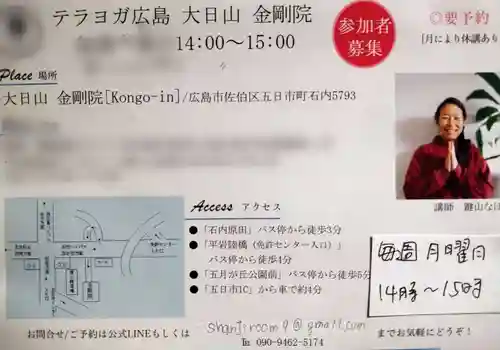 テラヨガ広島 大日山 金剛院
14:00〜15:00
参加者
募集
◎要予約
[月により休講あり
Place 場所
大日山 金剛院[Kongo-in]/広島市佐伯区五日市町石内5793
講師 鍵山なほ
Access アクセス
●「石内原田」バス停から徒歩3分
●「平岩陸橋（免許センター入口）」
バス停から徒歩4分
●「五月が丘公園前」バス停から徒歩5分
●「五日市IC」から車で約4分
毎週 月曜日
14時〜15時
お問合せ/ご予約は公式LINEもしくは
shantiroom9@gmail.com
までお気軽にどうぞ！
℡ 090-9462-5174